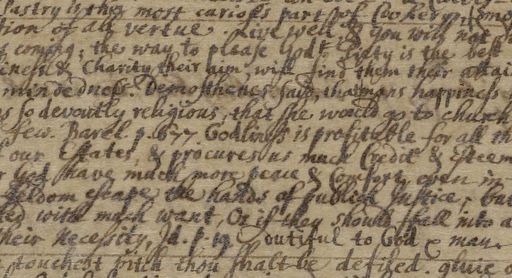 Pastry is the most curious part of Cookery, some
tion of all vertue Live well, & you will not
s coming; the way to please God. Piety is the best
liness & Charity their aim, will find them their
mindedness. Demosthenes said, that mans happiness
s so devoutly religious, that she would go to church
few. Barel. p. 677. Godliness is profitable for all
our Estates, & procures us much Credit & Esteem
God have much more peace & Comfort even in
seldom escape the hands of publick Justice; but
ted with much want, Or if they should fall into a
their Necessity, Id. p. 19. outiful to God may
toucheth pitch thou shalt be defiled give